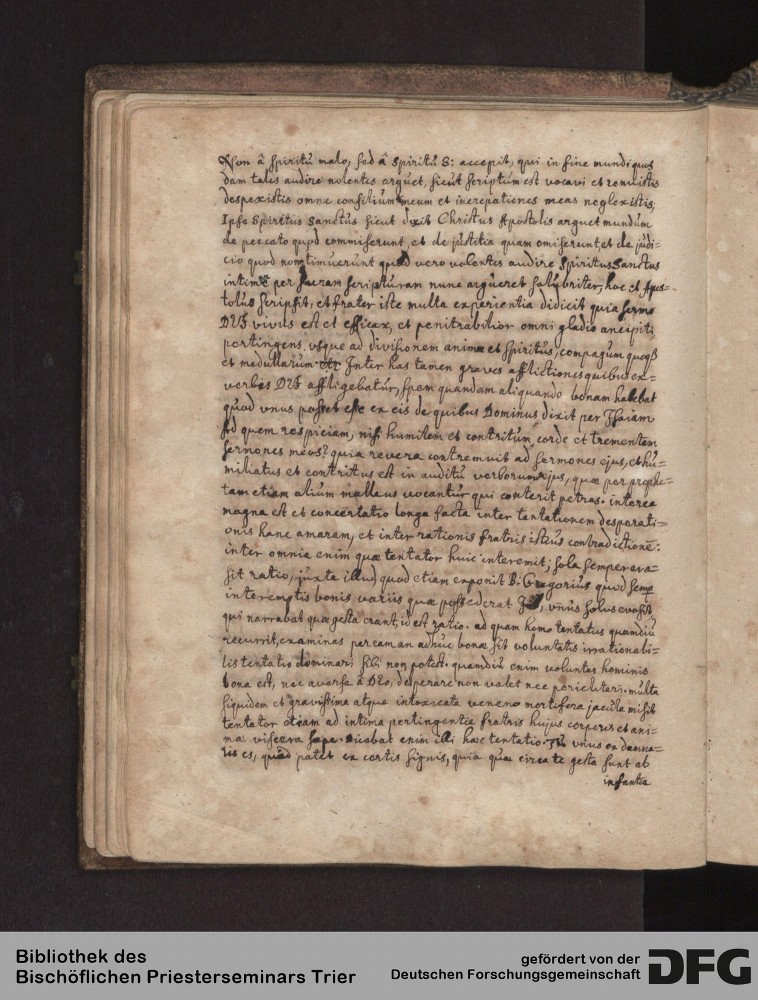 Non â spiritû malo, sed â spiritû S: accepit, qui in fine mundi quos
dam tales audire nolentes arguet, sicut scriptûm est vocavi et renuistis
despexistis omne consilium meum et increpationes meas neglexistis,
Ipse Spiritus Sanctûs sicut dixit Christus Apostolis arguet mundûm
de peccato quod commiserunt, et de jûstitia quam omiserunt, et de jûdi=
cio quod non timuerûnt quod vero volentes audire Spiritus Sanctus
intime per sacram scriptûram nunc argueret salubriter, hoc et Apos=
tolûs scripsit, et frater iste multa experientia didicit quia sermo
DEI vivûs est et efficax, et penitrabilior omni gladio ancipiti,
pertingens, usque ad divisionem animæ et Spiritûs, compagum quoqß
et medullarum Inter has tamen graves afflictiones quibus ex=
verbis DEI affligebatûr, spem quandam aliquando bonam habebat
quod vnus posset esse ex eis de quibus Dominus dixit per Isaiam
ad quem respiciam, nisi humilem et contritûm, corde et trementem
sermones meos? quia revera contremuit ad sermones ejus, et hu=
miliatus et contritus est in auditû verborum ejus, quæ per prophe=
tam etiam alium malleus vocantûr qui conterit petras. interea
magna est et concertatio longa facta inter tentationem desperati=
onis hanc amaram, et inter rationis fratris istius contradictionē:
inter omnia enim quæ tentator huic interemit; sola semper eva=
sit ratio, juxta illud quod etiam exponit B: Gregorius quod semp
interemptis bonis variis quæ possederat Job, vnus solus evasit,
qui narrabat quæ gesta erant, id est ratio. ad quam homo tentatus quamdiû
recurrit, examinas per eam an adhuc bonæ sit voluntatis irrationabi=
lis tentatio dominari sibi non potest. quamdiû enim voluntas hominis
bona est, nec aversa â DEo, desperare non valet nec periclitari. multa
siquidem et gravissima atque intoxicata veneno mortifera jacûla misit
tentator etiam ad intima pertingentia fratris hujus corporis et ani=
mæ viscera sæpe. dicebat enim illi hæc tentatio. Tû vnus ex damna=
tis es, quod patet ex certis signis, quia quæ circa te gesta sunt ab
infantia
Bibliothek des
Bischöflichen Priesterseminars Trier
gefördert von der
Deutschen Forschungsgemeinschaft
DFG